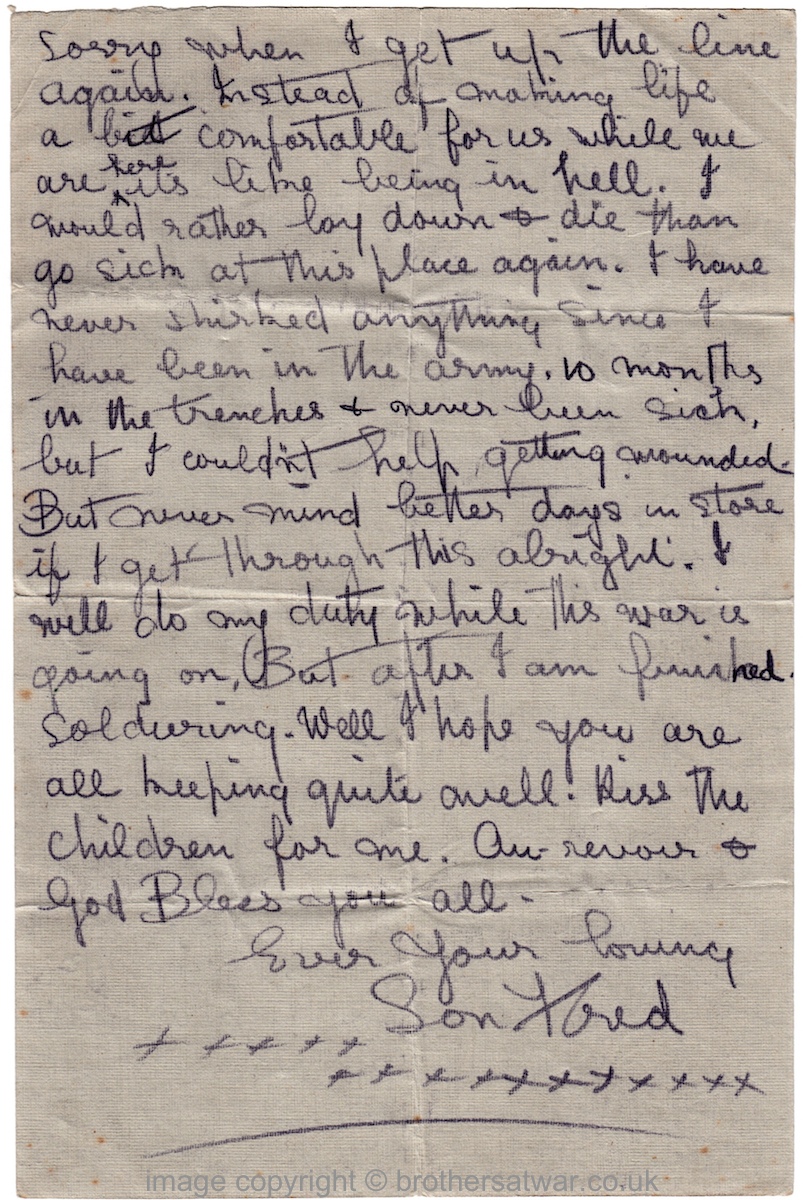 sorry when I get up the line
again. Instead of making life
a bit comfortable for us while we
are here its like being in hell. I
would rather lay down & die than
go sick at this place again. I have
never shirked anything since I
have been in the army. 10 months
in the trenches & never been sick,
but I couldn't help getting wounded.
But never mind better days in store
if I get through this alright. I
will do my duty while this war is
going on, But after I am finished
soldiering. Well I hope you are
all keeping quite well. Kiss the
children for me. Au-revoir &
God Bless you all.
Ever Your loving
Son Fred
x x x x x
x x x x x x x x x x x
image copyright © brothersatwar.co.uk